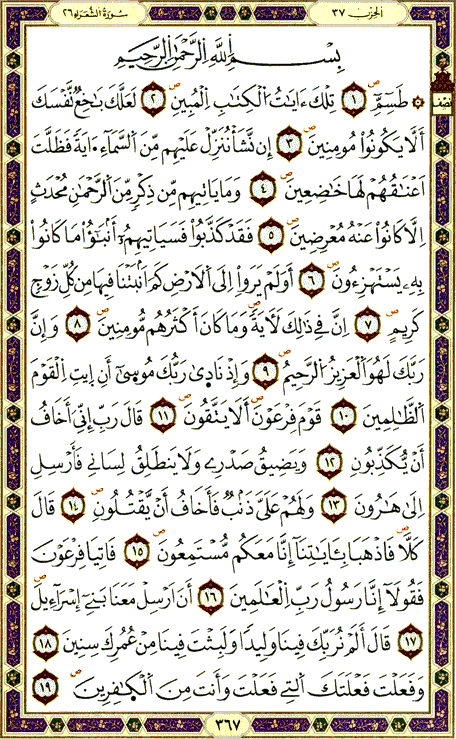 الحزب ٣٧
سُورَةُ الشُّعَرَاءِ ٢٦
نصف
بِسْمِ اللَّهِ الرَّحْمَٰنِ الرَّحِيمِ
۞ طَسِمِّٓ ١ تِلْكَ ءَايَٰتُ الْكِتَٰبِ الْمُبِينِ ٢ لَعَلَّكَ بَٰخِعٌ نَّفْسَكَ
أَلَّا يَكُونُواْ مُومِنِينَ ٣ إِن نَّشَأْ نُنَزِّلْ عَلَيْهِم مِّنَ السَّمَآءِ ايَةً فَظَلَّتَ
اَعْنَٰقُهُمْ لَهَا خَٰضِعِينَ ٤ وَمَا يَاتِيهِم مِّن ذِكْرٍ مِّنَ الرَّحْمَٰنِ مُحْدَثٍ
اِلَّا كَانُواْ عَنْهُ مُعْرِضِينَ ٥ فَقَدْ كَذَّبُواْ فَسَيَاتِيهِمُۥٓ أَنۢبَٰٓؤُاْ مَا كَانُواْ
بِهِۦ يَسْتَهْزِءُونَ ٦ أَوَلَمْ يَرَوِاْ اِلَى اَلَارْضِ كَمَ اَنۢبَتْنَا فِيهَا مِن كُلِّ زَوْجٍ
كَرِيمٍ ٧ اِنَّ فِي ذَٰلِكَ لَأٓيَةً وَمَا كَانَ أَكْثَرُهُم مُّومِنِينَ ٨ وَإِنَّ
رَبَّكَ لَهُوَ اَلْعَزِيزُ اُلرَّحِيمُ ٩ وَإِذْ نَادَىٰ رَبُّكَ مُوسَىٰٓ أَنِ اِيتِ اِلْقَوْمَ
اَلظَّٰلِمِينَ ١٠ قَوْمَ فِرْعَوْنَ أَلَا يَتَّقُونَ ١١ قَالَ رَبِّ إِنِّيَ أَخَافُ
أَنْ يُّكَذِّبُونِ ١٢ وَيَضِيقُ صَدْرِے وَلَا يَنطَلِقُ لِسَانِي فَأَرْسِلِ
اِلَىٰ هَٰرُونَ ١٣ وَلَهُمْ عَلَيَّ ذَنۢبٌ فَأَخَافُ أَنْ يَّقْتُلُونِ ١٤ قَالَ
كَلَّا فَاذْهَبَا بِـَٔايَٰتِنَآ إِنَّا مَعَكُم مُّسْتَمِعُونَ ١٥ فَاتِيَا فِرْعَوْنَ
فَقُولَآ إِنَّا رَسُولُ رَبِّ اِلْعَٰلَمِينَ ١٦ أَنَ اَرْسِلْ مَعَنَا بَنِےٓ إِسْرَآءِيلَ
١٧ قَالَ أَلَمْ نُرَبِّكَ فِينَا وَلِيدًا وَلَبِثْتَ فِينَا مِنْ عُمُرِكَ سِنِينَ ١٨
وَفَعَلْتَ فَعْلَتَكَ اَلتِے فَعَلْتَ وَأَنتَ مِنَ اَلْكَٰفِرِينَ ١٩
٣٦٧